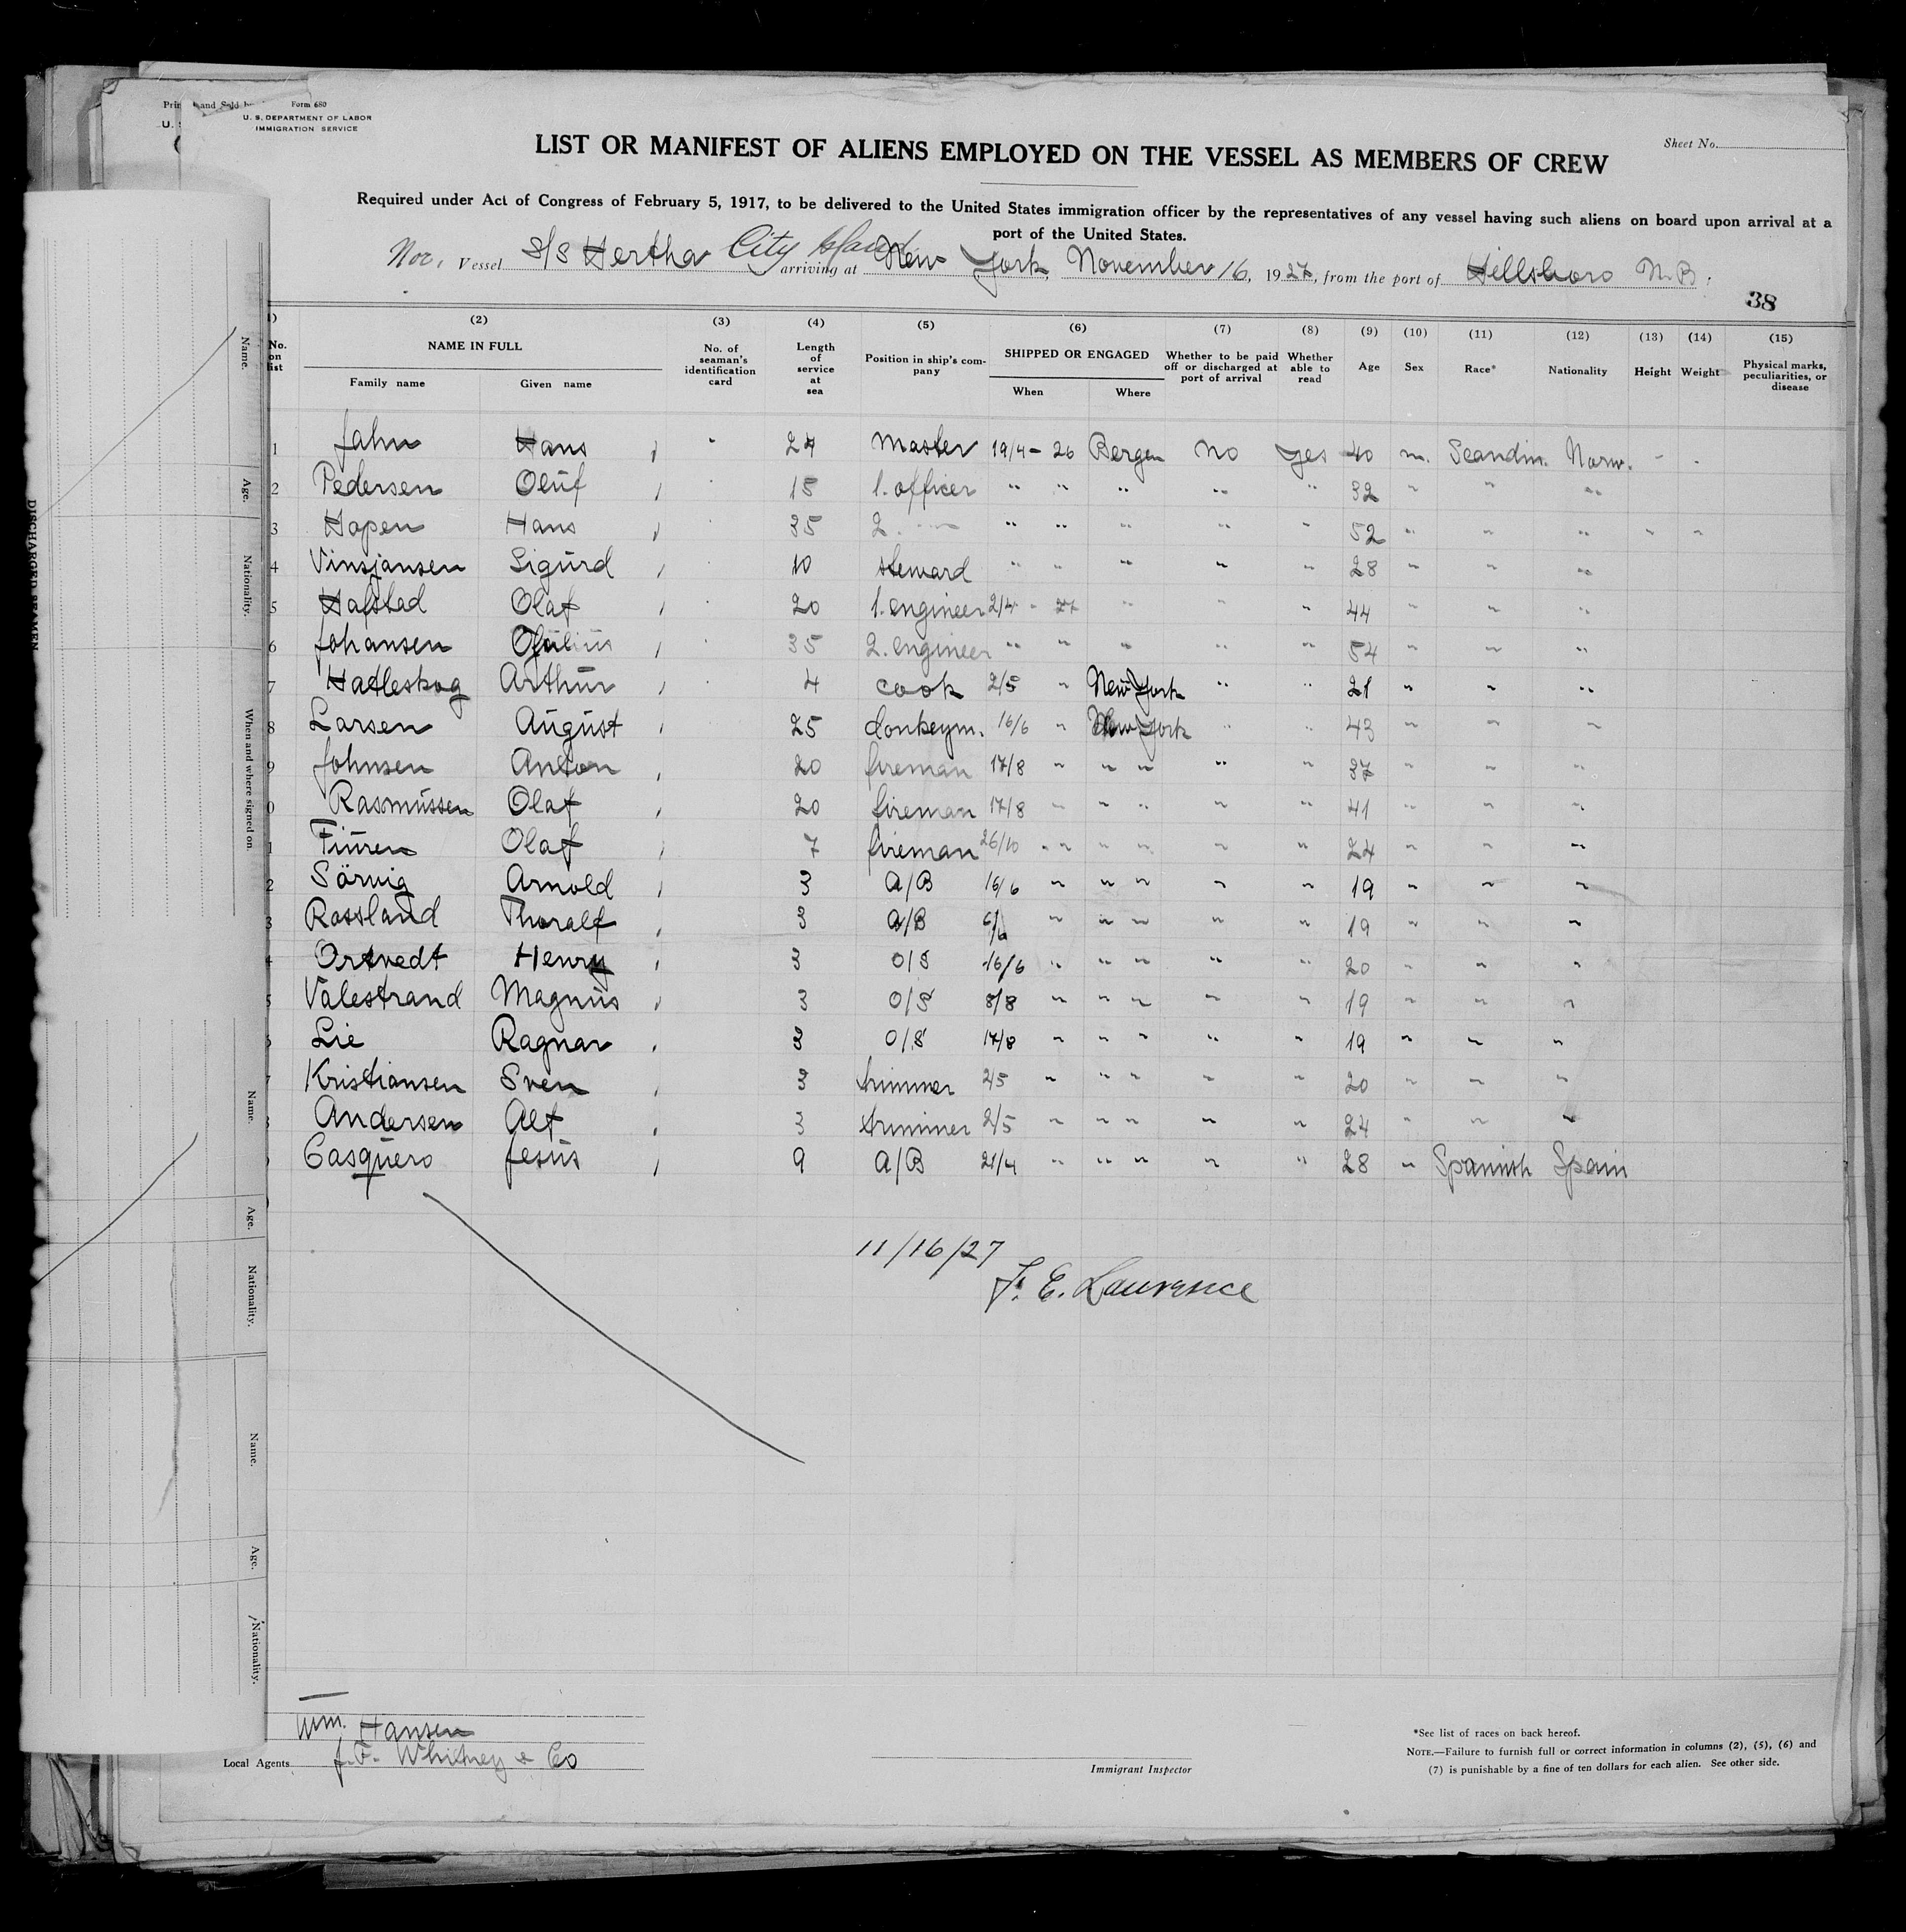 Form 680
U. S. DEPARTMENT OF LABOR
IMMIGRATION SERVICE
Sheet No.
LIST OR MANIFEST OF ALIENS EMPLOYED ON THE VESSEL AS MEMBERS OF CREW
Required under Act of Congress of February 5, 1917, to be delivered to the United States immigration officer by the representatives of any vessel having such aliens on board upon arrival at a
port of the United States.
Nor. Vessel S/S Hertha City Island arriving at New York, November 16, 1927, from the port of Hillsboro N.B.
38
(2) (3) (4) (5) (6) (7) (8) (9) (10) (11) (12) (13) (14) (15)
No. on list NAME IN FULL Family name Given name No. of seaman's identification card Length of service at sea Position in ship's company SHIPPED OR ENGAGED When Where Whether to be paid off or discharged at port of arrival Whether able to read Age Sex Race* Nationality Height Weight Physical marks, peculiarities, or disease
1 Jahn Hans 24 Master 19/4 - 26 Bergen no yes 40 m. Scandin. Norw. - -
2 Pedersen Oluf 15 1. officer " " " " " 32 " " "
3 Hopen Hans 35 2. " " " " " " 52 " " " " "
4 Vinsjansen Sigurd 10 steward " " " " " 28 " " "
5 Hafstad Olaf 20 1. engineer 2/4 - 27 " " " 44 " " "
6 Johansen 35 2. engineer " " " " " 54 " " "
7 Hatleskog Arthur 4 cook 2/5 " New York " " 21 " " "
8 Larsen August 25 donkeym. 16/6 " New York " " 43 " " "
9 Johnsen Anton 20 fireman 17/8 " " " " " 37 " " "
0 Rasmussen Olaf 20 fireman 17/8 " " " " " 41 " " "
1 Olaf 7 fireman 26/10 " " " " " " 24 " " "
2 Sörvig Arnold 3 A/B 16/6 " " " " " 19 " " "
3 Rossland Thoralf 3 A/B " " " " " 19 " " "
4 Ortvedt Henry 3 O/S 16/6 " " " " " 20 " " "
5 Valestrand Magnus 3 O/S 8/8 " " " " " 19 " " "
6 Lie Ragnar 3 O/S 17/8 " " " " " 19 " " "
7 Kristiansen Sven 3 trimmer 2/5 " " " " " 20 " " "
8 Andersen Alf 3 trimmer 2/5 " " " " " 24 " " "
9 Casquero Jesus 9 A/B 21/4 " " " " " 28 " Spanish Spain
11/16/27
F. E. Lawrence
Wm. Hansen
Local Agents J. F. Whitney & Co
Immigrant Inspector
*See list of races on back hereof.
NOTE.—Failure to furnish full or correct information in columns (2), (5), (6) and
(7) is punishable by a fine of ten dollars for each alien. See other side.
DISCHARGED SEAMEN
Name.
Age.
Nationality.
When and where signed on.
Name.
Age.
Nationality.
Name.
Age.
Nationality.